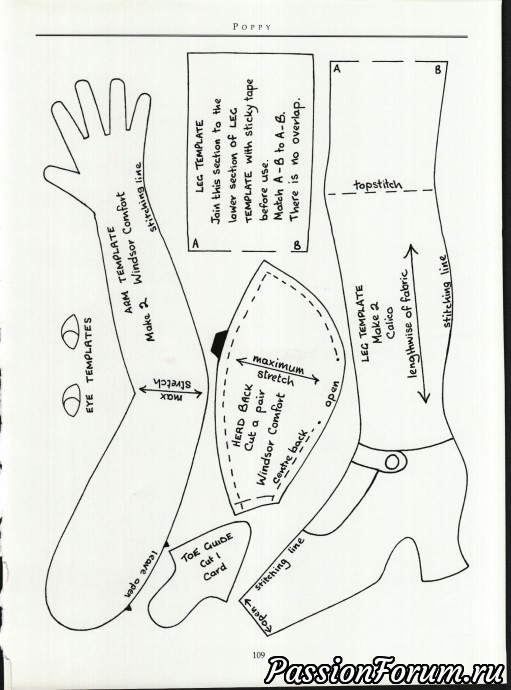 POPPY
LEG TEMPLATE
Join this section to the
lower section of LEG
TEMPLATE with sticky tape
before use.
Match A-B to A-B.
There is no overlap.
A
B
A
B
topstitch
LEG TEMPLATE
Make 2
Calico
lengthwise of fabric
stitching line
ARM TEMPLATE
Make 2 Windsor Comfort
stitching line
max
stretch
leave open
EYE TEMPLATES
maximum
stretch
HEAD BACK
Cut a pair
Windsor Comfort
centre back
open
TOE GUIDE
Cut 1
Card
stitching line
open
109
PassionForum.ru